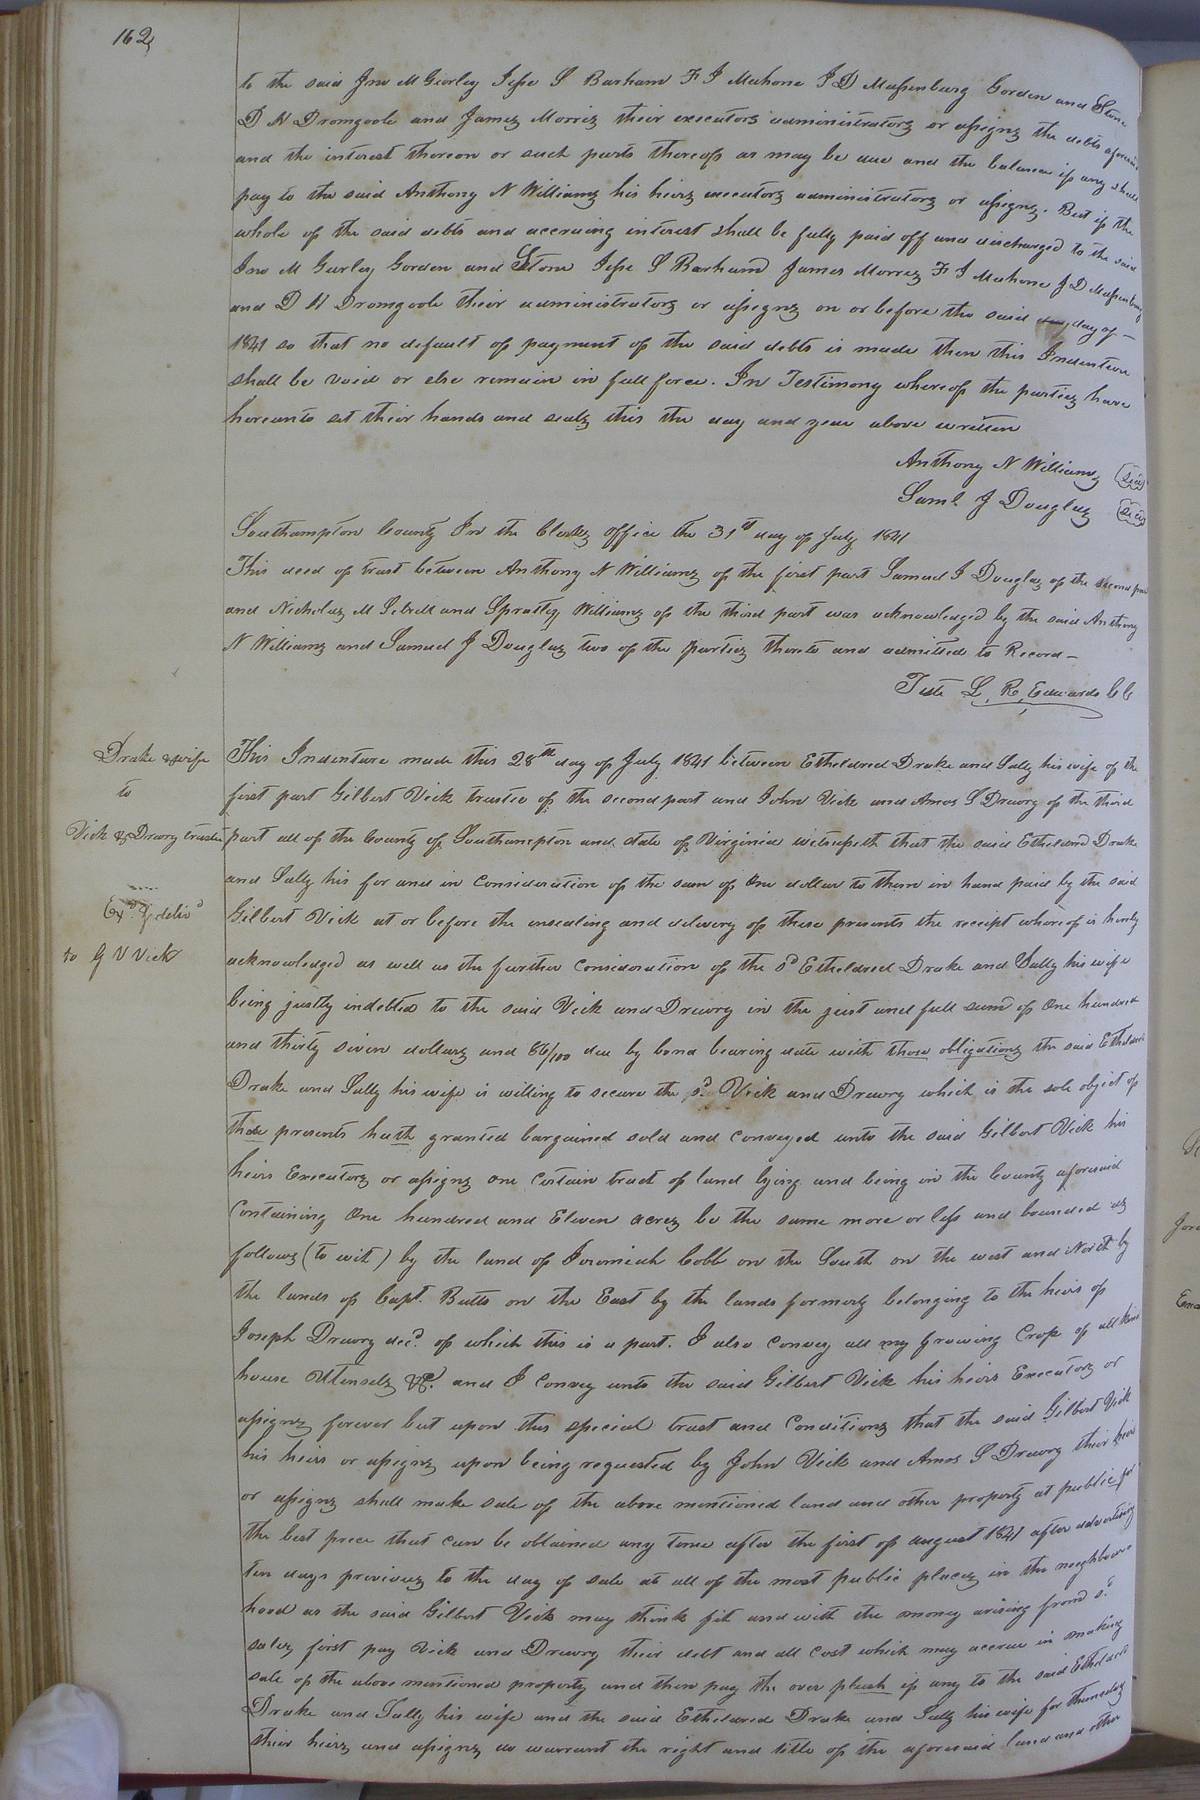 162
to the said Jno M Gurley Jesse S Barham F J Mahone J D Massenburg Gorden and Stone
D H Dromgoole and James Morris their executors administrators or assigns the debts aforesaid
and the interest thereon or such parts thereof as may be due and the balance if any shall
pay to the said Anthony N Williams his heirs executors administrators or assigns. But if the
whole of the said debts and accruing interest shall be fully paid off and discharged to the said
Jno M Gurley Gorden and Stone Jesse S Barham James Morris F J Mahone J D Massenburg
and D H Dromgoole their administrators or assigns on or before the said day of —
1841 so that no default of payment of the said debts is made then this Indenture
shall be void or else remain in full force. In Testimony whereof the parties have
hereunto set their hands and seals this the day and year above written
Anthony N Williams (seal)
Saml. J Douglas (seal)
Southampton County In the Clerks office the 31st day of July 1841
This deed of trust between Anthony N Williams of the first part Samuel J Douglas of the second part
and Nicholas M Sebrell and Spratley Williams of the third part was acknowledged by the said Anthony
N Williams and Samuel J Douglas two of the parties thereto and admitted to Record —
Teste L. R. Edwards CC
Drake & wife
to
Vick & Drewry trustee
Exd. & delivd
to G V Vick
This Indenture made this 28th day of July 1841 between Etheldred Drake and Sally his wife of the
first part Gilbert Vick trustee of the second part and John Vick and Amos S Drewry of the third
part all of the County of Southampton and state of Virginia witnesseth that the said Etheldred Drake
and Sally his for and in Consideration of the sum of One dollar to them in hand paid by the said
Gilbert Vick at or before the ensealing and delivery of these presents the receipt whereof is hereby
acknowledged as well as the further Consideration of the sd Etheldred Drake and Sally his wife
being justly indebted to the said Vick and Drewry in the just and full sum of One hundred
and thirty seven dollars and 86/100 due by bond bearing date with these obligations the said Etheldred
Drake and Sally his wife is willing to secure the sd. Vick and Drewry which is the sole object of
these presents hath granted bargained sold and Conveyed unto the said Gilbert Vick his
heirs Executors or assigns one Certain tract of land lying and being in the County aforesaid
Containing One hundred and Eleven acres be the same more or less and bounded as
follows (to wit) by the land of Jeremiah Cobb on the South on the west and North by
the lands of Capt. Butts on the East by the lands formerly belonging to the heirs of
Joseph Drewry decd. of which this is a part. I also Convey all my growing Crop of all kinds
house Utensels &c. and I Convey unto the said Gilbert Vick his heirs Executors or
assigns forever but upon this special trust and Conditions that the said Gilbert Vick
his heirs or assigns upon being requested by John Vick and Amos S Drewry their heirs
or assigns shall make sale of the above mentioned land and other property at public for
the best price that can be obtained any time after the first of august 1841 after advertising
ten days previous to the day of sale at all of the most public places in the neighbour
hood as the said Gilbert Vick may think fit and with the money arising from sd.
sales first pay Vick and Drewry their debt and all Cost which may accrue in making
sale of the above mentioned property and then pay the over plush if any to the said Etheldred
Drake and Sally his wife and the said Etheldred Drake and Sally his wife for themselves
their heirs and assigns do warrant the right and title of the aforesaid land and other